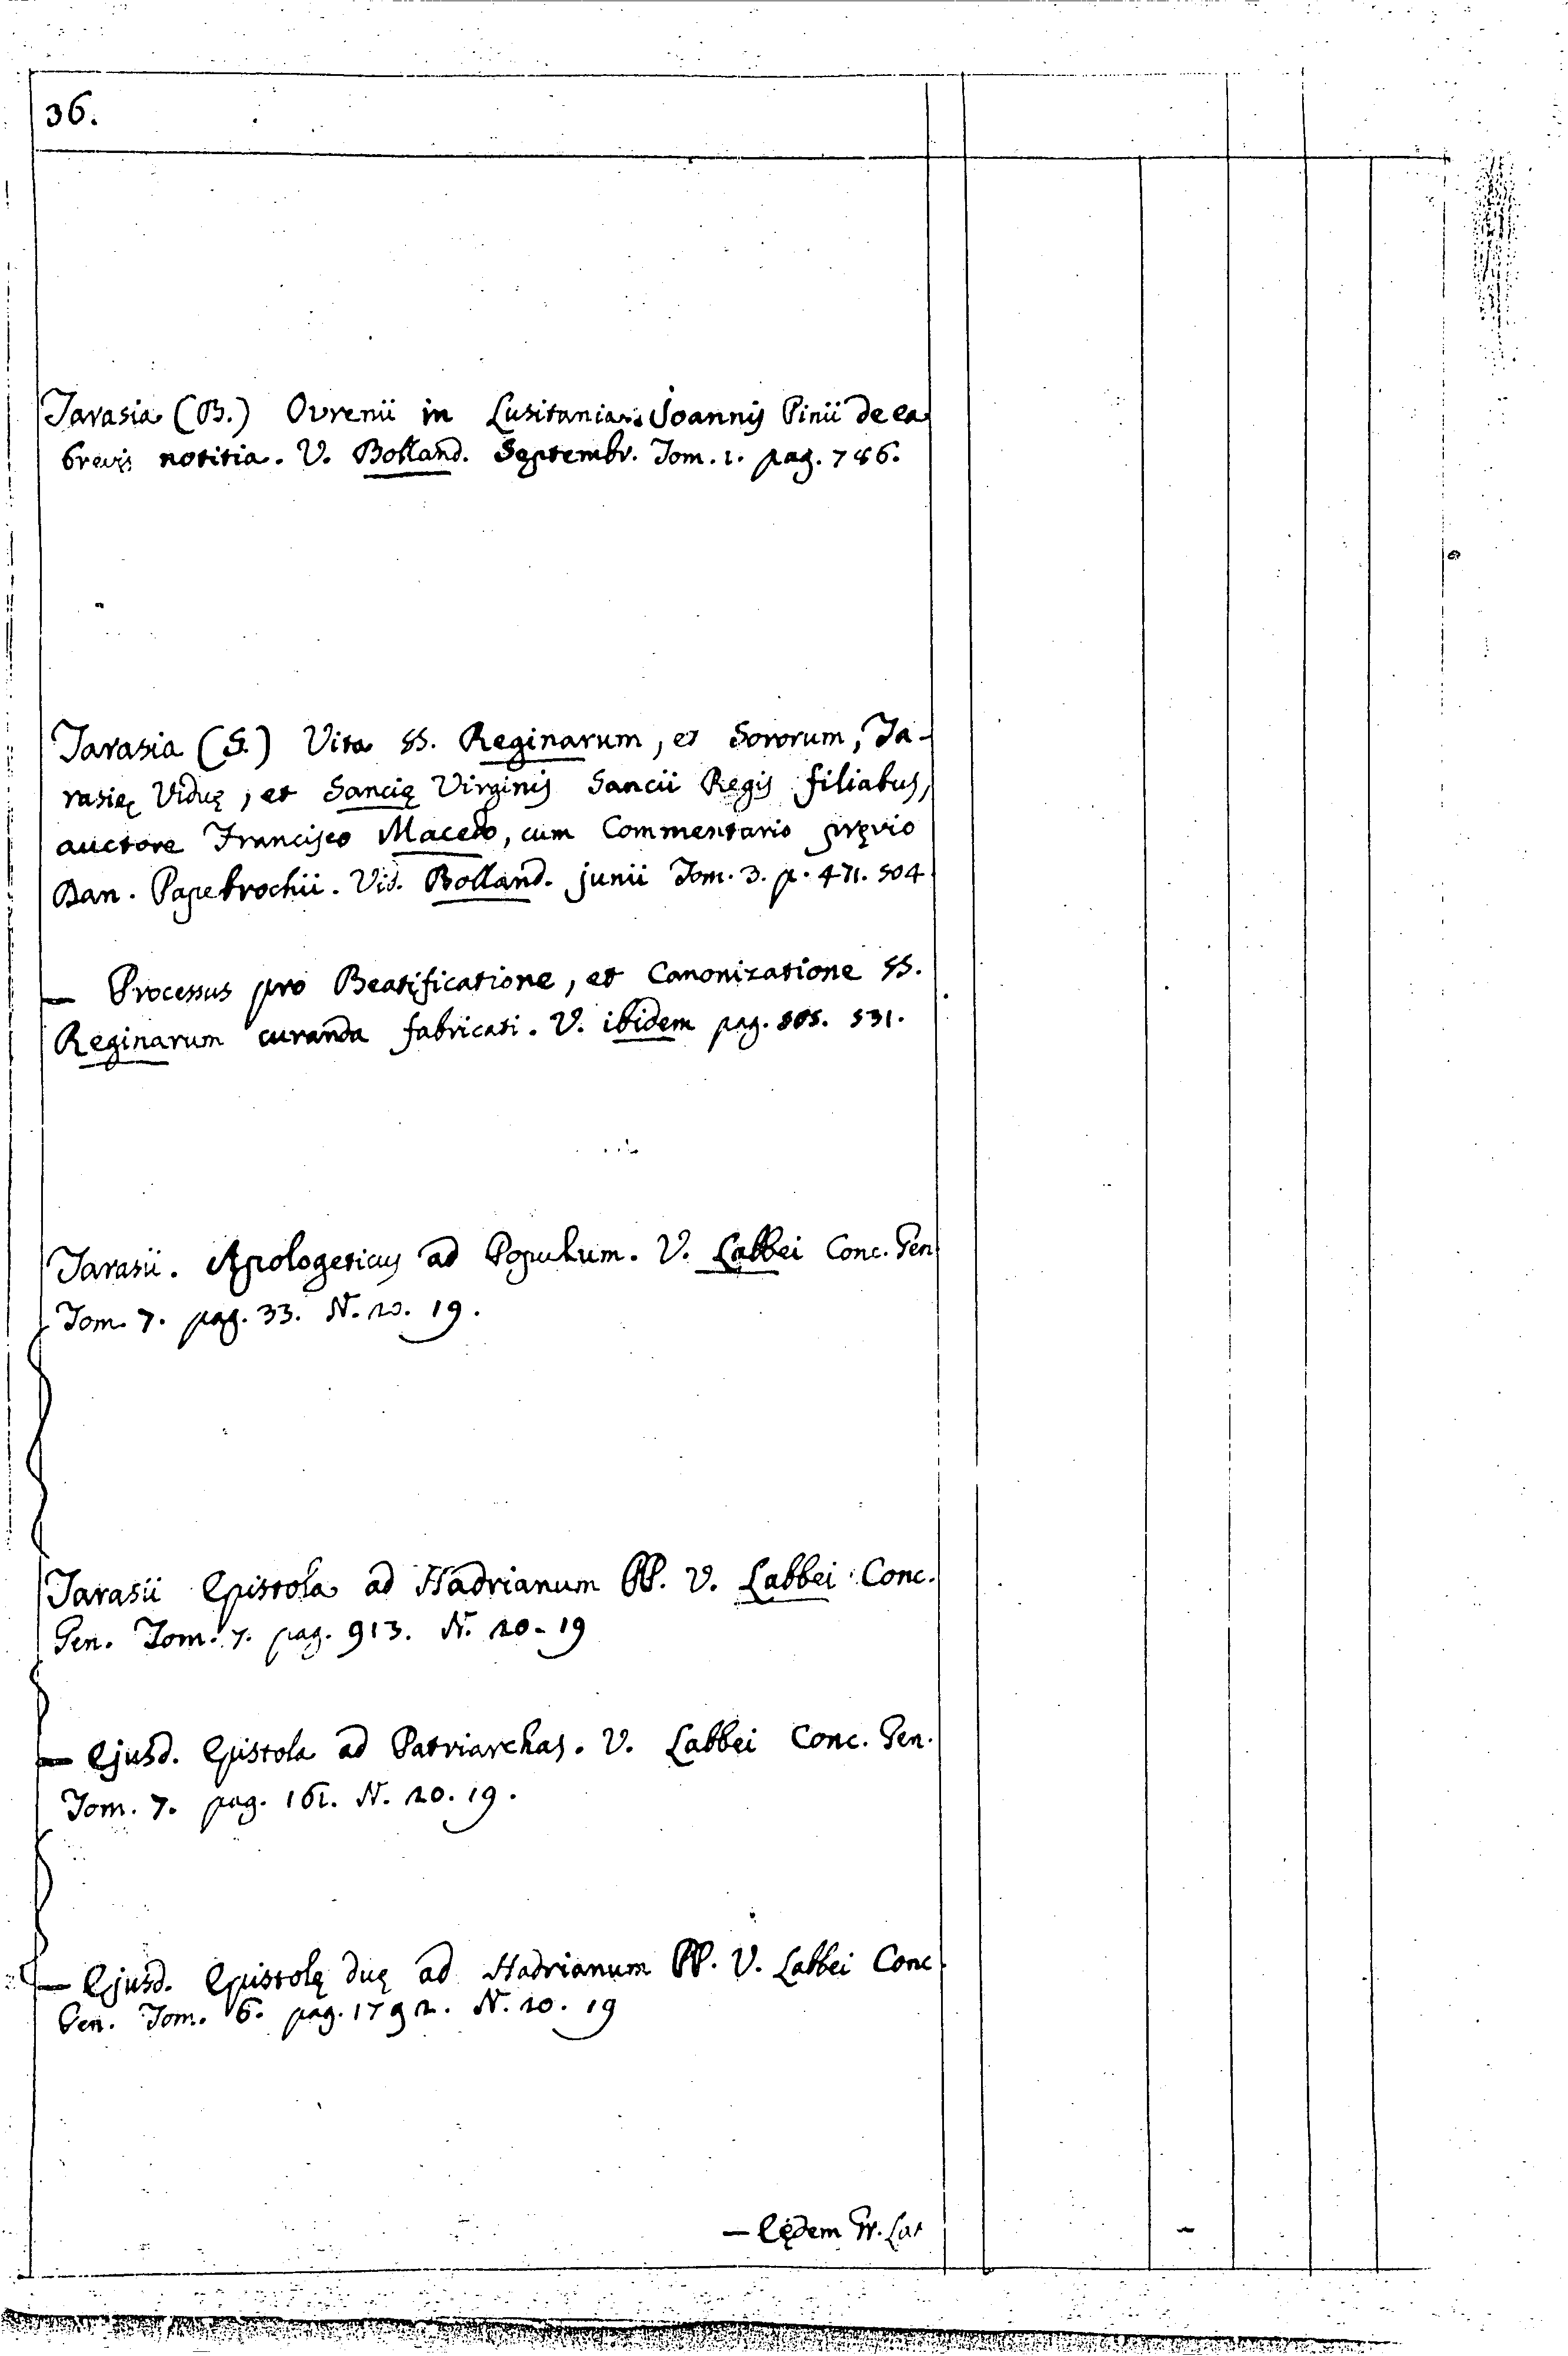 36.
Tarasia (B.) Ourenii in Lusitania. Joannis Pinii de ea
brevis notitia. V. Bolland. Septembr. Tom. 1. pag. 786.
Tarasia (S.) Vita SS. Reginarum, et Sororum, Ta-
rasię Viduę, et Sancię Virginis Sancii Regis filiabus,
auctore Francisco Macedo, cum Commentario pręvio
Dan. Papebrochii. Vid. Bolland. junii Tom. 3. p. 471. 504
— Processus pro Beatificatione, et Canonizatione SS.
Reginarum curanda fabricati. V. ibidem pag. 505. 531.
Tarasii. Apologeticus ad Populum. V. Labbei Conc. Gen
Tom. 7. pag. 33. N. 20. 19.
Tarasii Epistola ad Hadrianum PP. V. Labbei Conc.
Gen. Tom. 7. pag. 913. N. 20. 19
— Ejusd. Epistola ad Patriarchas. V. Labbei Conc. Gen.
Tom. 7. pag. 162. N. 20. 19.
— Ejusd. Epistolę duę ad Hadrianum PP. V. Labbei Conc
Gen. Tom. 6. pag. 1792. N. 20. 19
— Eędem Gr. Lat